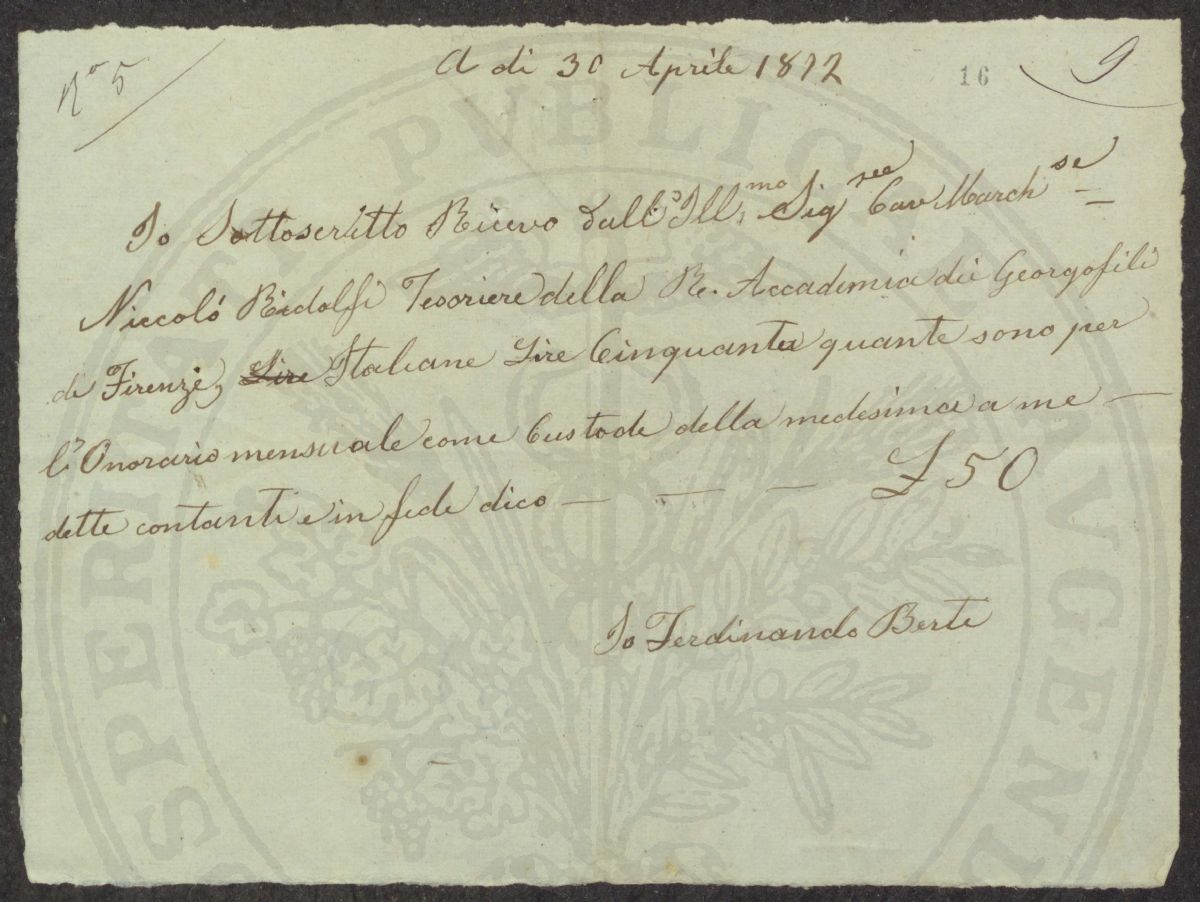 N.o 5
A di 30 Aprile 1812
16
9
Io Sottoscritto Ricevo dall'Ill.mo Sig.re Cav March.se
Niccoló Ridolfi Tesoriere della R. Accademia dei Georgofili
di Firenze, Lire Italiane Lire Cinquanta quante sono per
l'Onorario mensuale come Custode della medesima a me —
dette contanti e in fede dico — — — £ 50
Io Ferdinando Berti
PROSPERITATI PUBLICAE AUGENDAE